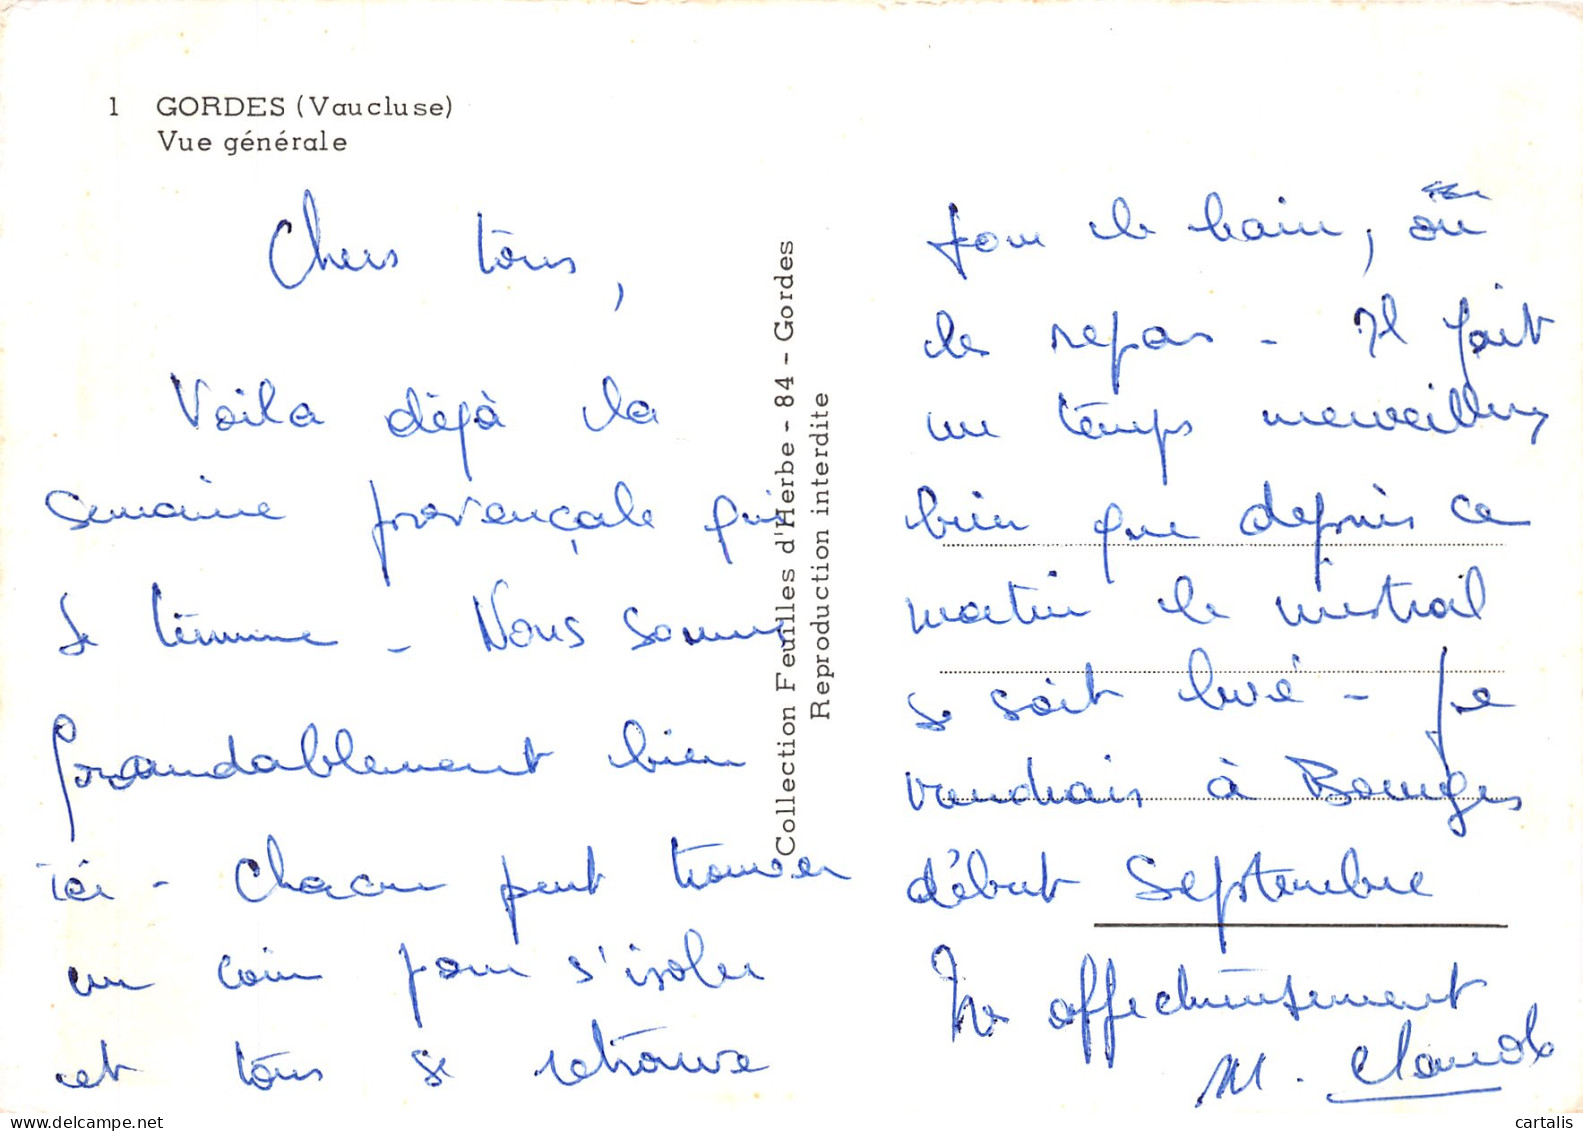 1 GORDES (Vaucluse)
Vue générale
Chers tous,
Voila déjà la
semaine provençale qui
se termine - Nous sommes
formidablement bien
ici - Chacun peut trouver
un coin pour s'isoler
et tous se retrouve
Collection Feuilles d'Herbe - 84 - Gordes
Reproduction interdite
pour le bain, ou
les repas - Il fait
un temps merveilleux
bien que depuis ce
matin le mistral
se soit levé - Je
viendrais à Bourges
début Septembre
Très affectueusement
M. Claude
cartalis